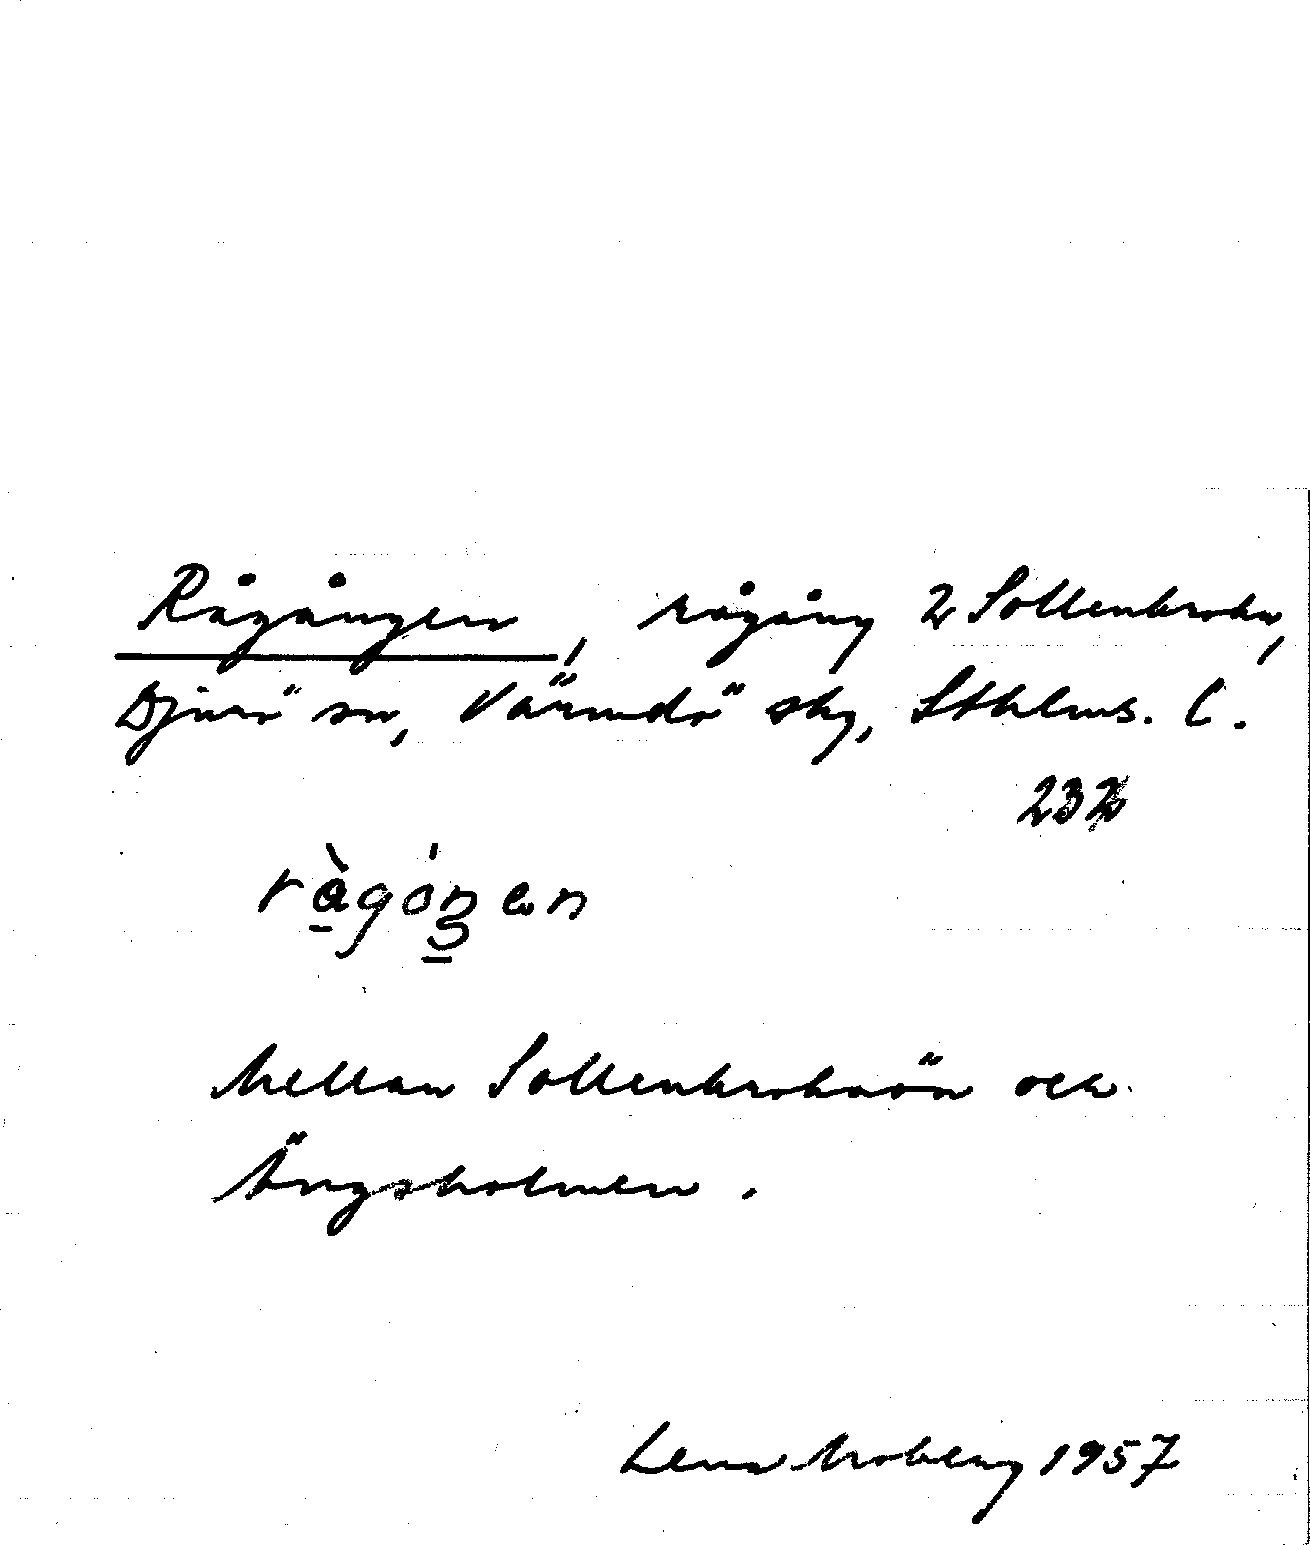 Rågången, rågång 2 Sollenkroka,
Djurö sn, Värmdö skg, Sthlms. l.
232
ràgóŋen
Mellan Sollenkrokaön och
Ängsholmen.
Lena Moberg 1957